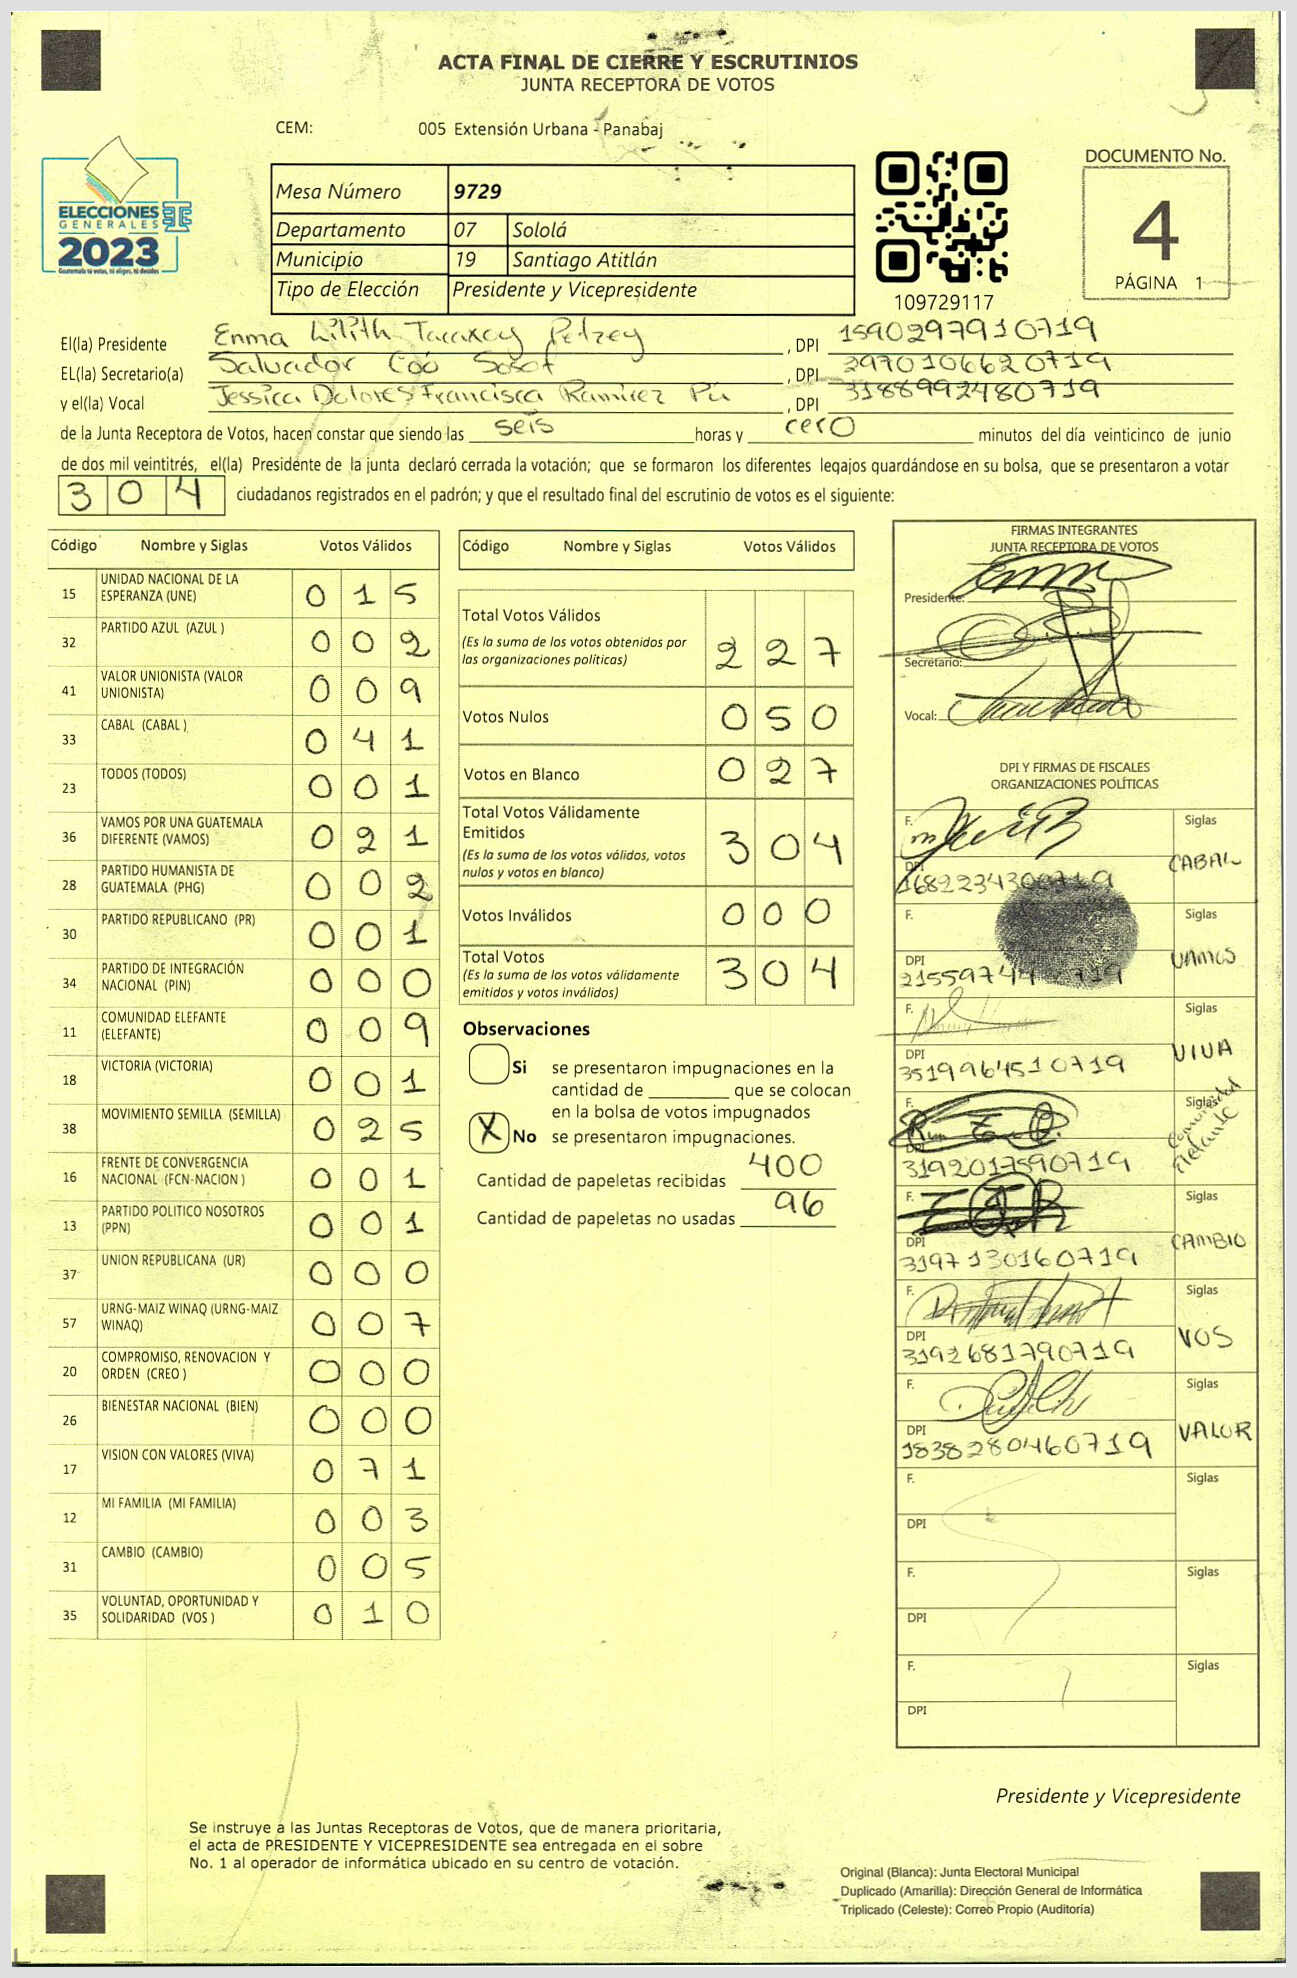 ACTA FINAL DE CIERRE Y ESCRUTINIOS
JUNTA RECEPTORA DE VOTOS
CEM: 005 Extensión Urbana - Panabaj
ELECCIONES
GENERALES
2023
Guatemala tú votas, tú eliges, tú decides
Mesa Número 9729
Departamento 07 Sololá
Municipio 19 Santiago Atitlán
Tipo de Elección Presidente y Vicepresidente
109729117
DOCUMENTO No.
4
PÁGINA 1
El(la) Presidente Enma Lilith Tacaxoy Petzey, DPI 1590297910719
EL(la) Secretario(a) Salvador Coó Sosof, DPI 2970106620719
y el(la) Vocal Jessica Dolores Francisca Ramirez Pú, DPI 3188992480719
de la Junta Receptora de Votos, hacen constar que siendo las seis horas y cero minutos del día veinticinco de junio
de dos mil veintitrés, el(la) Presidente de la junta declaró cerrada la votación; que se formaron los diferentes legajos guardándose en su bolsa, que se presentaron a votar
304 ciudadanos registrados en el padrón; y que el resultado final del escrutinio de votos es el siguiente:
Código Nombre y Siglas Votos Válidos
15 UNIDAD NACIONAL DE LA ESPERANZA (UNE) 015
32 PARTIDO AZUL (AZUL ) 002
41 VALOR UNIONISTA (VALOR UNIONISTA) 009
33 CABAL (CABAL ) 041
23 TODOS (TODOS) 001
36 VAMOS POR UNA GUATEMALA DIFERENTE (VAMOS) 021
28 PARTIDO HUMANISTA DE GUATEMALA (PHG) 002
30 PARTIDO REPUBLICANO (PR) 001
34 PARTIDO DE INTEGRACIÓN NACIONAL (PIN) 000
11 COMUNIDAD ELEFANTE (ELEFANTE) 009
18 VICTORIA (VICTORIA) 001
38 MOVIMIENTO SEMILLA (SEMILLA) 025
16 FRENTE DE CONVERGENCIA NACIONAL (FCN-NACION ) 001
13 PARTIDO POLITICO NOSOTROS (PPN) 001
37 UNION REPUBLICANA (UR) 000
57 URNG-MAIZ WINAQ (URNG-MAIZ WINAQ) 007
20 COMPROMISO, RENOVACION Y ORDEN (CREO ) 000
26 BIENESTAR NACIONAL (BIEN) 000
17 VISION CON VALORES (VIVA) 071
12 MI FAMILIA (MI FAMILIA) 003
31 CAMBIO (CAMBIO) 005
35 VOLUNTAD, OPORTUNIDAD Y SOLIDARIDAD (VOS ) 010
Código Nombre y Siglas Votos Válidos
Total Votos Válidos 227
(Es la suma de los votos obtenidos por
las organizaciones políticas)
Votos Nulos 050
Votos en Blanco 027
Total Votos Válidamente
Emitidos 304
(Es la suma de los votos válidos, votos
nulos y votos en blanco)
Votos Inválidos 000
Total Votos 304
(Es la suma de los votos válidamente
emitidos y votos inválidos)
Observaciones
Si se presentaron impugnaciones en la
cantidad de ________ que se colocan
en la bolsa de votos impugnados
X No se presentaron impugnaciones.
Cantidad de papeletas recibidas 400
Cantidad de papeletas no usadas 96
FIRMAS INTEGRANTES
JUNTA RECEPTORA DE VOTOS
Presidente:
Secretario:
Vocal:
DPI Y FIRMAS DE FISCALES
ORGANIZACIONES POLÍTICAS
F. Siglas CABAL
DPI
F. Siglas VAMOS
DPI
F. Siglas VIVA
DPI 3519964510719
F. Siglas Comunidad Elefante
DPI 3192017590719
F. Siglas CAMBIO
DPI 3197130160719
F. Siglas VOS
DPI 3192681790719
F. Siglas VALOR
DPI 1838280460719
F. Siglas
DPI
F. Siglas
DPI
F. Siglas
DPI
Presidente y Vicepresidente
Se instruye a las Juntas Receptoras de Votos, que de manera prioritaria,
el acta de PRESIDENTE Y VICEPRESIDENTE sea entregada en el sobre
No. 1 al operador de informática ubicado en su centro de votación.
Original (Blanca): Junta Electoral Municipal
Duplicado (Amarilla): Dirección General de Informática
Triplicado (Celeste): Correo Propio (Auditoría)